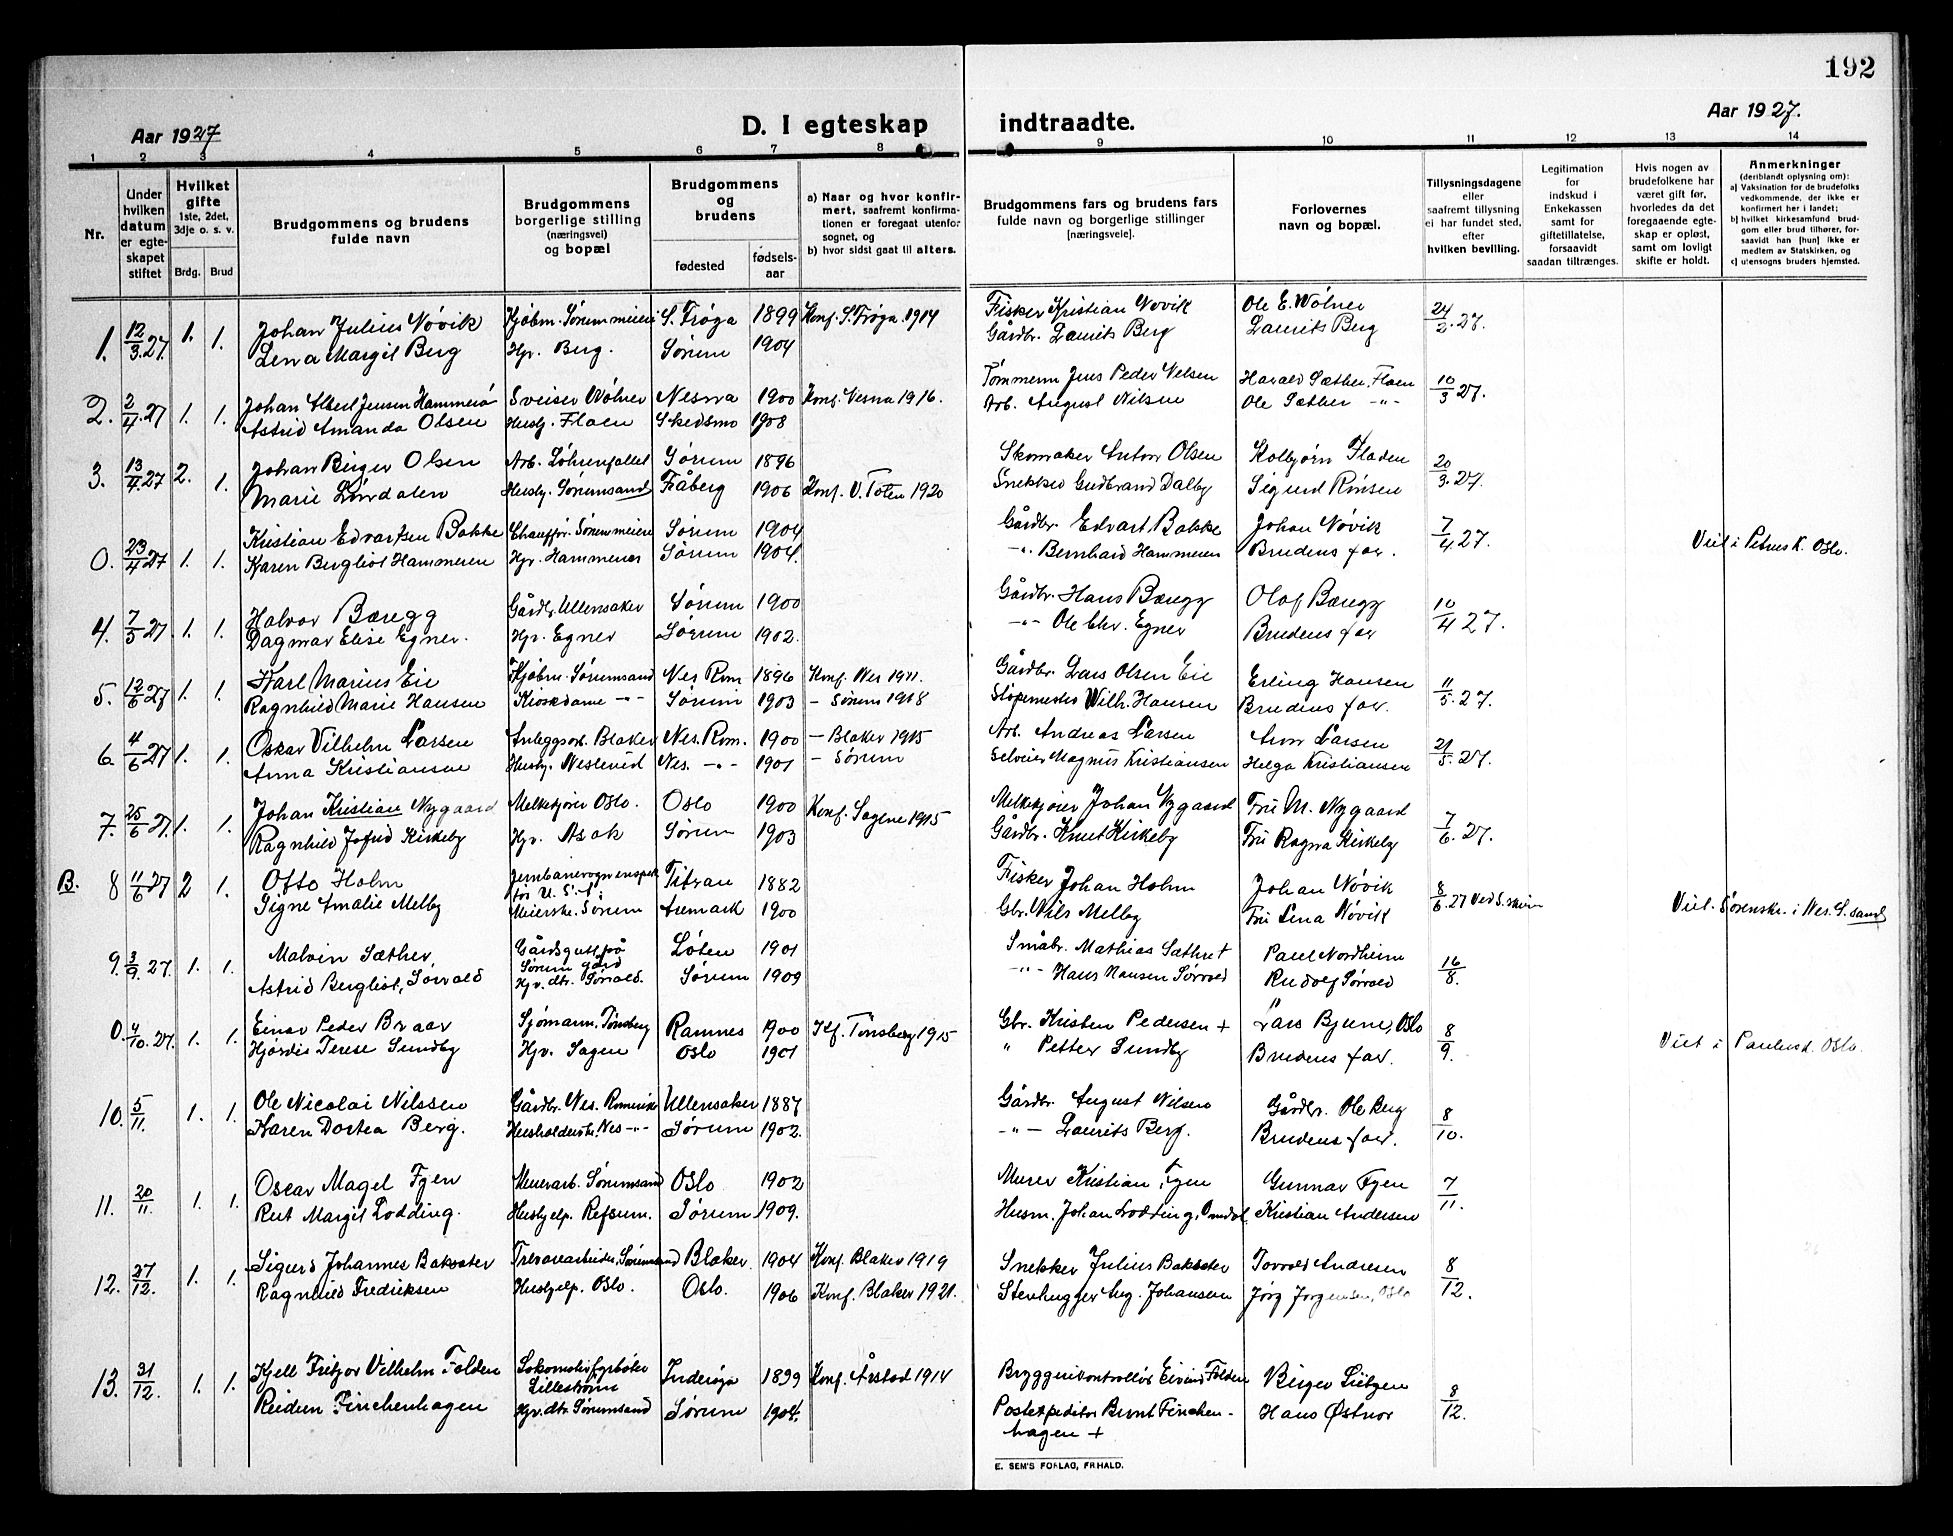 192
Aar 1927
D. I egteskap indtraadte.
Aar 1927.
1 2 3 4 5 6 7 8 9 10 11 12 13 14
Nr.
Under hvilken datum er egteskapet stiftet
Hvilket gifte
1ste, 2det, 3dje o. s. v.
Brdg. Brud
Brudgommens og brudens fulde navn
Brudgommens og brudens borgerlige stilling (næringsvei) og bopæl
Brudgommens og brudens
fødested
fødselsaar
a) Naar og hvor konfirmert, saafremt konfirmationen er foregaat utenfor sognet, og
b) hvor sidst gaat til alters.
Brudgommens fars og brudens fars fulde navn og borgerlige stillinger [næringsveie].
Forlovernes navn og bopæl.
Tillysningsdagene eller saafremt tillysning ei har fundet sted, efter hvilken bevilling.
Legitimation for indskud i Enkekassen samt for giftetillatelse, forsaavidt saadan tiltrænges.
Hvis nogen av brudefolkene har været gift før, hvorledes da det foregaaende egteskap er opløst, samt om lovligt skifte er holdt.
Anmerkninger (deriblandt oplysning om):
a) Vaksination for de brudefolks vedkommende, der ikke er konfirmert her i landet;
b) hvilket kirkesamfund brudgom eller brud tilhører, forsaavidt han [hun] ikke er medlem av Statskirken, og
c) utensogns bruders hjemsted.
1. 12/3.27. 1. 1. Johan Julius Növik Kjøbm. Sørum meieri S. Frøya 1899 Konf. S. Frøya. 1914 Fisker Kristian Növik Ole E. Wölner 24/2.27.
Lena Margit Berg Hjv. Berg. Sørum 1904 Gårdbr. Laurits Berg Laurits Berg
2. 2/4.27 1. 1. Johan Albert Jensen Hammerö Sveiser Wölner Nesna 1900 Konf. Nesna 1916. Tømmerm Jens Peder Nelsen Harald Sæther, Floen 10/3 27.
Astrid Amanda Olsen Hushj. Floen Skedsmo 1908 Arb. August Nilsen Ole Sæther -"-
3. 13/4 27 2. 1. Johan Birger Olsen Arb. Løhrenfallet Sørum 1896 Skomaker Anton Olsen Kolbjørn Fladen 20/3.27.
Marie Lundalen Hushj. Sørumsand Fåberg 1906 Konf. V. Toten 1920 Snekker Gudbrand Dalby Sigurd Rönsen
0. 23/4 27 1. 1. Kristian Edvartsen Bakke Chauffør. Sørum meieri Sørum 1904 Gårdbr. Edvart Bakke Johan Növik 7/4 27. Viet i Petrus K. Oslo.
Karen Bergliot Hammeren Hjv. Hammeren Sørum 1904. -"- Bernhard Hammeren Brudens far.
4. 7/5 27. 1. 1. Halvor Bæregg Gårdbr. Ullensaker Sørum 1900 Gårdbr. Hans Bæregg Olaf Bæregg 10/4 27.
Dagmar Elise Egner. Hjv. Egner Sørum 1902. -"- Ole Chr. Egner Brudens far
5. 12/6 27 1. 1. Karl Marius Eie Kjøbm. Sørumsand Nes Rom. 1896 Konf. Nes 1911. Gårdbr. Lars Olsen Eie Erling Hansen 11/5.27.
Ragnhild Marie Hansen Kioskdame -"- Sørum 1903 - Sørum 1918 Wilh. Hansen Brudens far.
6. 4/6 27 1. 1. Oskar Vilhelm Larsen Anleggsarb. Blaker Nes. Rom. 1900 - Blaker 1915 Arb. Andreas Larsen Larsen 21/5.27.
Anna Kristiansen Hushj. Nes. -"- 1901 - Sørum Selveier Magnus Kristiansen Helga Kristiansen
7. 25/6 27. 1. 1. Johan Kristian Nygaard Melkekjører Oslo. Oslo 1900 Konf. Sagene 1915 Melkekjører Johan Nygaard Fru M. Nygaard 7/6.27.
Ragnhild Jofrid Kirkeby Hjv. Asak Sørum 1903 Gårdbr. Knut Kirkeby Fru Ragna Kirkeby
B. 8 11/6 27 2 1. Otto Holm Jernbanevognenspektør U. S. A. Titran 1882 Fisker Johan Holm Johan Növik 8/6.27 Viel. Sørenskr. i Nes. S. sand
Signe Amalie Melby Meierske. Sørum Aremark 1900 Gbr. Nils Melby Fru Lena Növik
9. 3/9.27. 1. 1. Malvin Sæther, Gårdsgutt på Sørum gård Løten 1901 Småbr. Mathias Sæthret Paul Nordheim 16/8.
Astrid Bergliot, Sørvald Hjv. dtr. Sørvald. Sørum 1909 -"- Hans Hansen Sørvald Rudolf Sørvald
0. 4/10.27. 1. 1. Einar Peder Braar Sjømann, Tønsberg Ramnes 1900 Kf. Tønsberg 1915 Gbr. Kristen Pedersen + Lars Bjune, Oslo 8/9. Viet i Paulusk. Oslo.
Hjørdis Terese Sundby Hjv. Sagen Oslo 1901 " Petter Sundby Brudens far.
10. 5/11. 1. 1. Ole Nicolai Nilssen Gårdbr. Nes. Romerike Ullensaker 1887 Gårdbr. August Nilsen Gårdbr. Ole Berg 8/10.
Karen Dortea Berg. Husholderske. Nes -"- Sørum 1902. -"- Laurits Berg. Brudens far.
11. 20/11. 1. 1. Oscar Magel Fgen Murerarb. Sørumsand Oslo 1902 Murer Kristian Fgen Gunnar Fgen 7/11.
Rut Margit Lodding. Hushjelp. Refsum. Sørum 1909. Husm. Johan Lodding, Kristian Andersen
12. 27/12. 1. 1. Sigurd Johannes Baksæter Trevarearbeider, Sørumsand Blaker. 1904 Konf. Blaker 1919 Snekker Julius Baksæter Torvald Andresen 8/12.
Ragnhild Fredriksen Hushjelp. Oslo. Oslo. 1906 Konf. Blaker 1921. Stenhugger Aug. Johansen Jørg Jørgensen, Oslo
13. 31/12. 1. 1. Kjell Fritjov Vilhelm Folden Lokomotivfyrbøter Lillestrøm Inderøya 1899 Konf. Årstad 1914 Bryggerikontrollør Eivind Folden Birger Lützen 8/12.
Reidun Finckenhagen Hjv. dtr. Sørumsand Sørum 1904. Postexpeditør Bernt Finckenhagen + Hans Østnor
E. SEM'S FORLAG, FR.HALD.